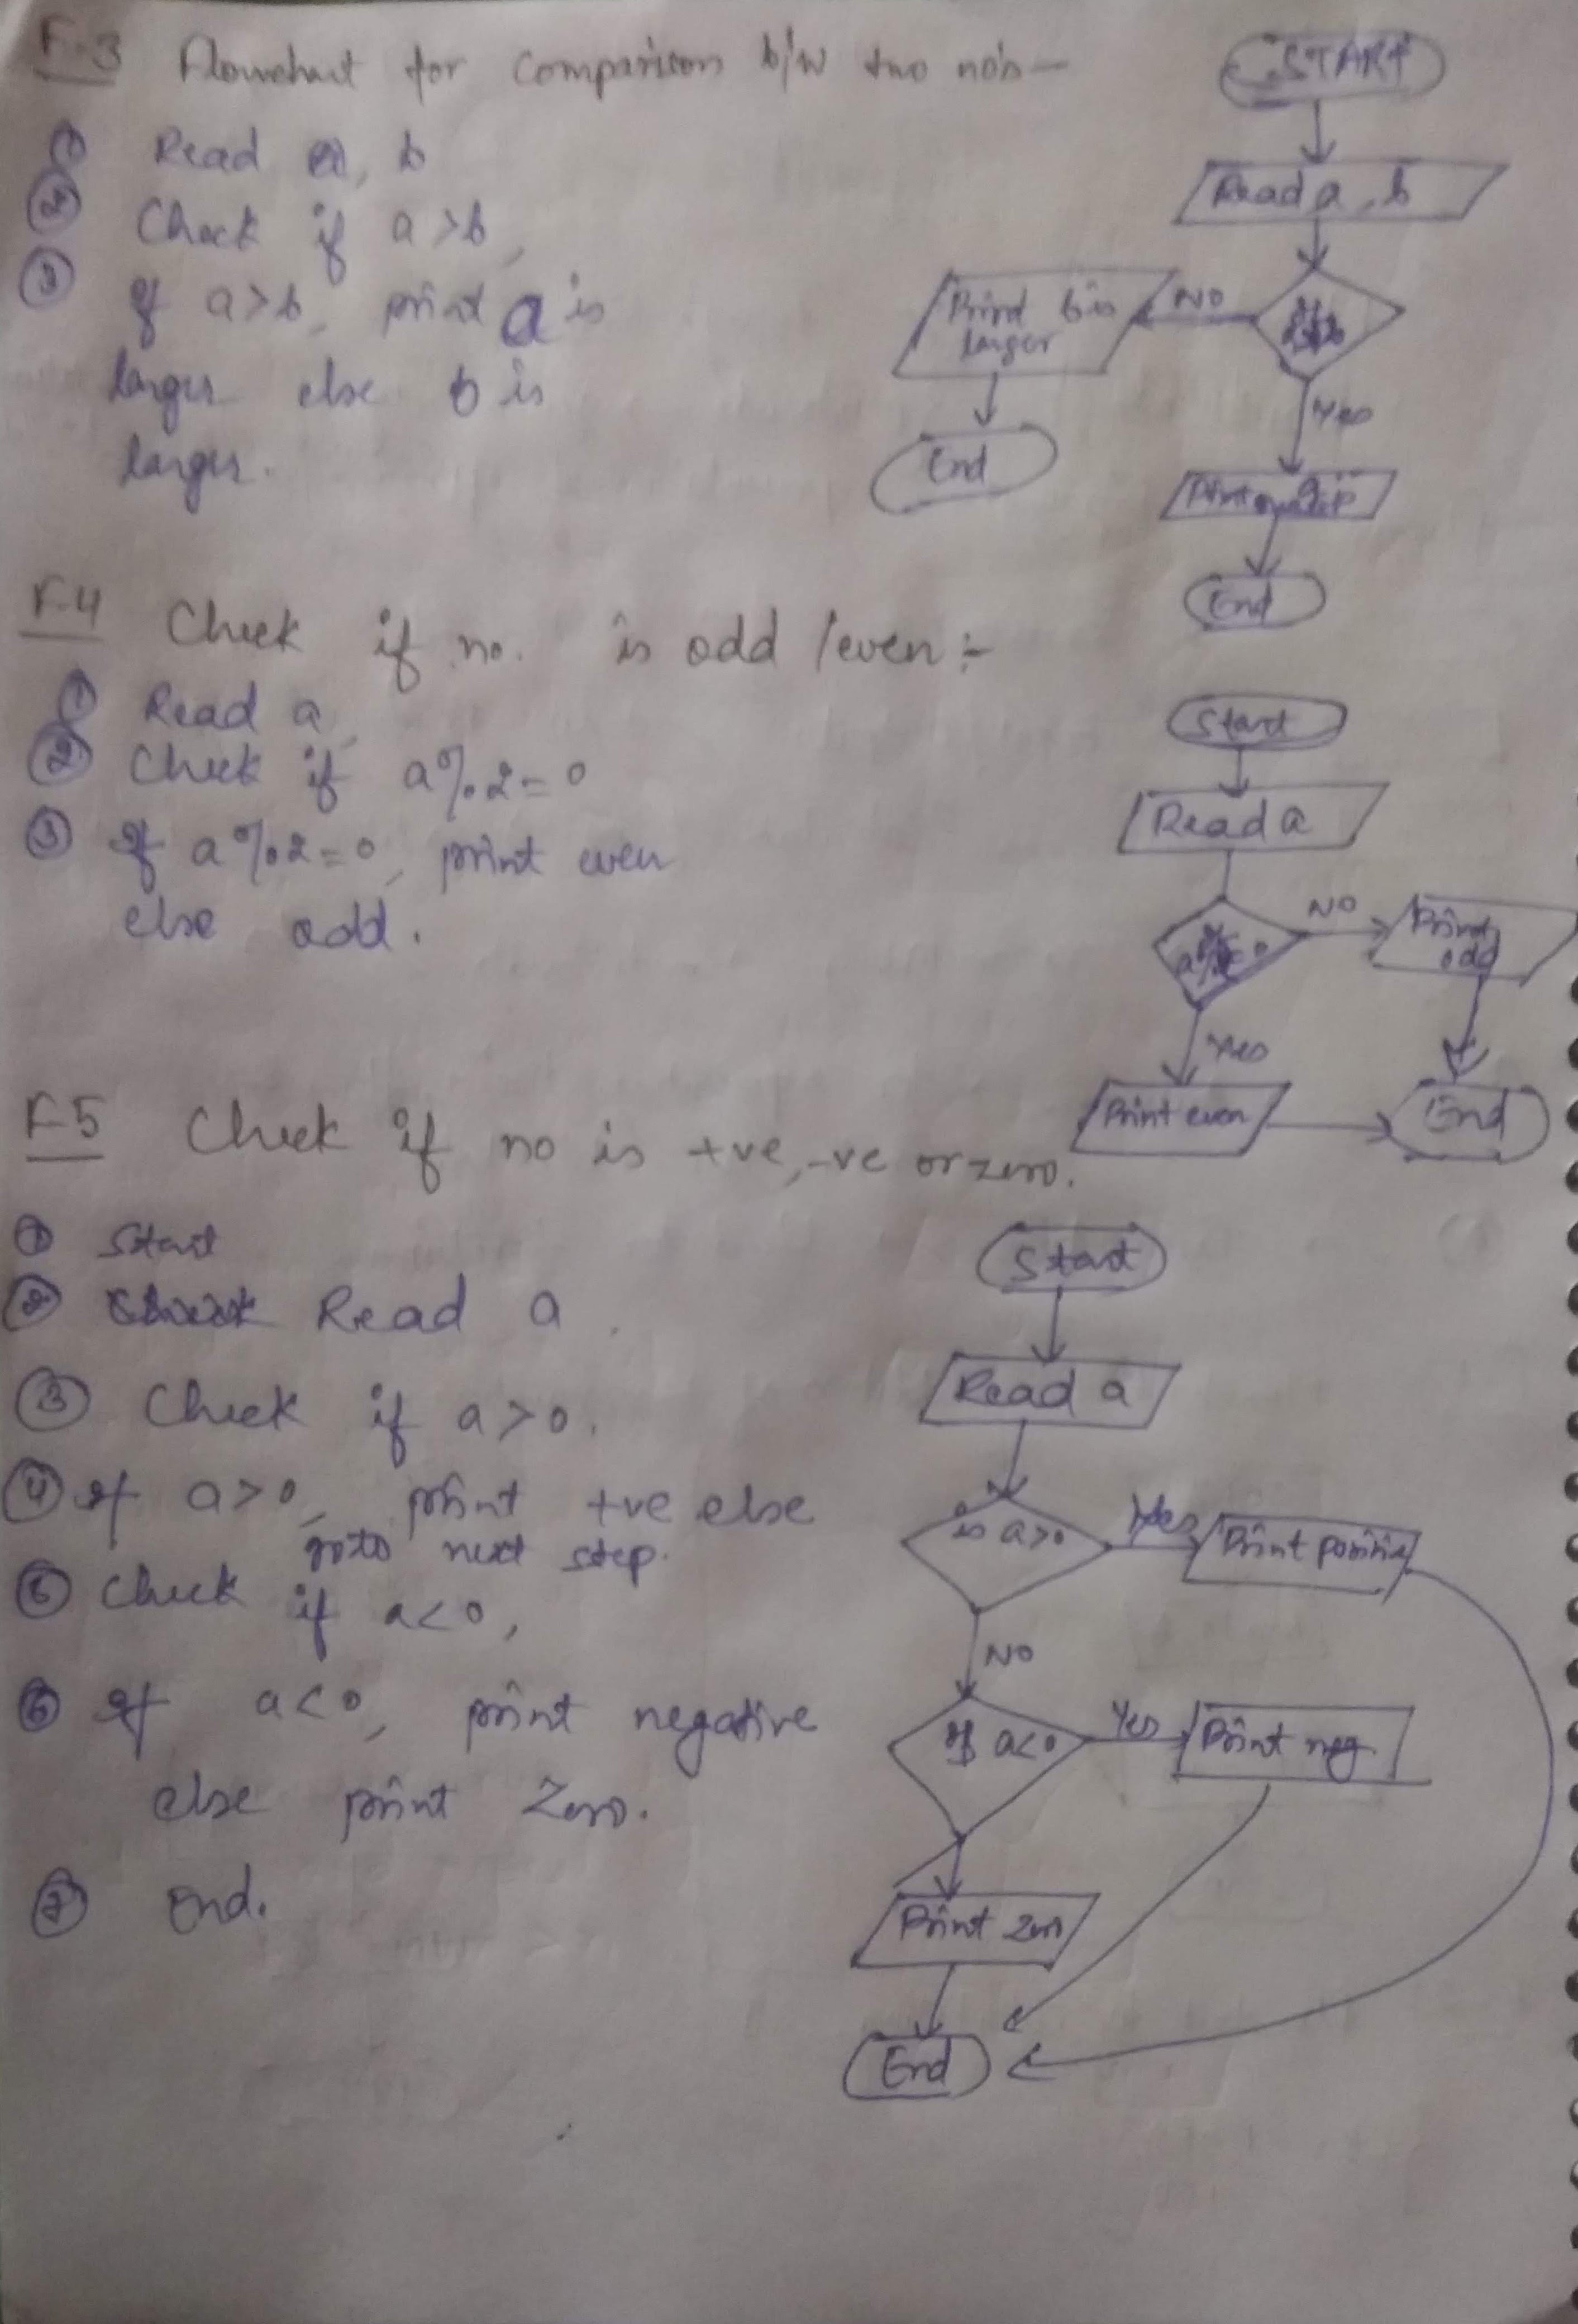 F-3 Flowchart for comparison b/w two nos—
① Read a, b
② Check if a>b,
③ If a>b, print a is
larger else b is
larger.
START
Read a, b
NO
Print b is
larger
Yes
End
Print
End
F-4 Check if no. is odd/even :-
① Read a
② Check if a%2=0
③ If a%2=0, print even
else odd.
Start
Read a
NO
Print
odd
Yes
Print even
End
F-5 Check if no is +ve, -ve or zero.
① Start
② Read a.
③ Check if a>0.
④ If a>0, print +ve else
goto next step.
⑤ Check if a<0,
⑥ If a<0, print negative
else print Zero.
⑦ End.
Start
Read a
is a>0
Yes
Print positive
NO
If a<0
Yes
Print neg.
Print Zero
End